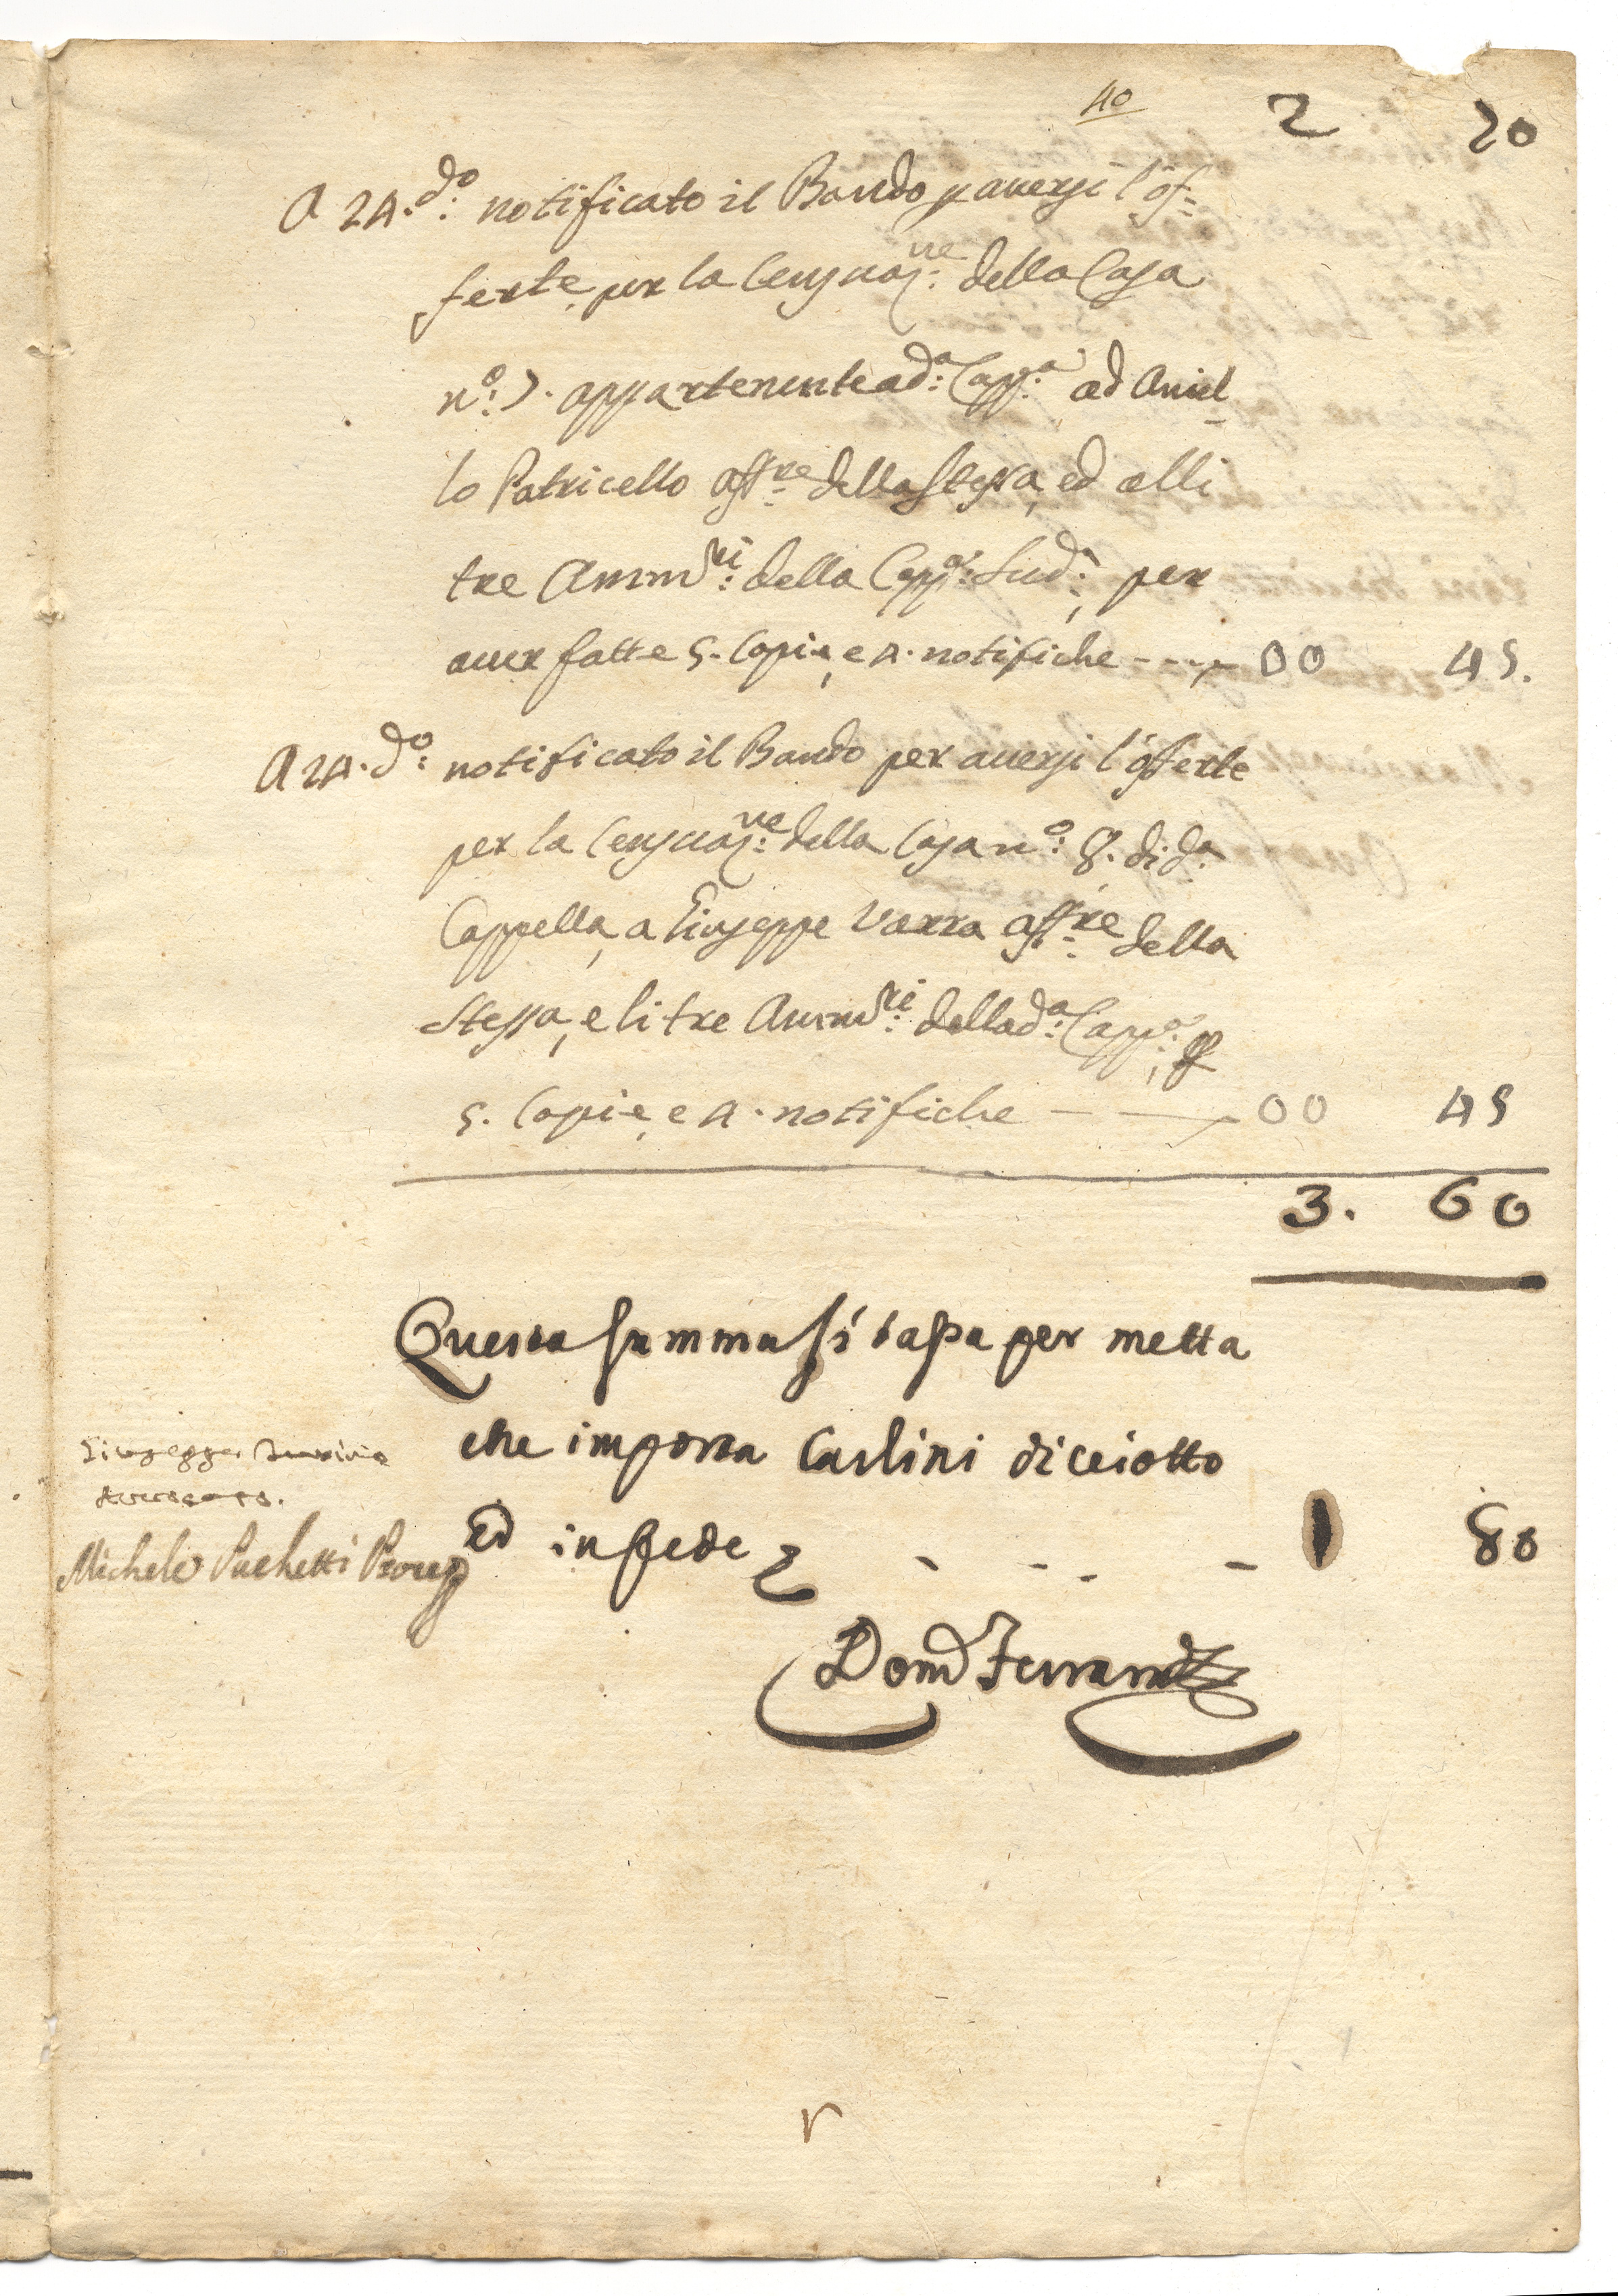 40
2 70
A 24. d.o notificato il Bando p averſi l'of=
ferte, per la Cenſuaz.ne della Caſa
n.o 7. appartenente a d.a Capp.a ad Aniel
lo Patricello aff.re della Stessa, ed alli
tre Amm.ri della Capp.a Sud.a, per
aver fatte 5. Copie, e 4. notifiche - - - 00 45.
A 24. d.o notificato il Bando per averſi l'offerte
per la Cenſuaz.ne della Caſa n.o 8. di d.a
Cappella, a Giuſeppe Varra aff.re della
Stessa, e li tre Amm.ri della d.a Capp.a, p
5. Copie, e 4. notifiche - - 00 45
3. 60
Questa ſumma ſi taſſa per metta
che importa Carlini diceiotto
Ed in fede - - - - 1 80
Michele Pachetti
Dom.o Ferrando